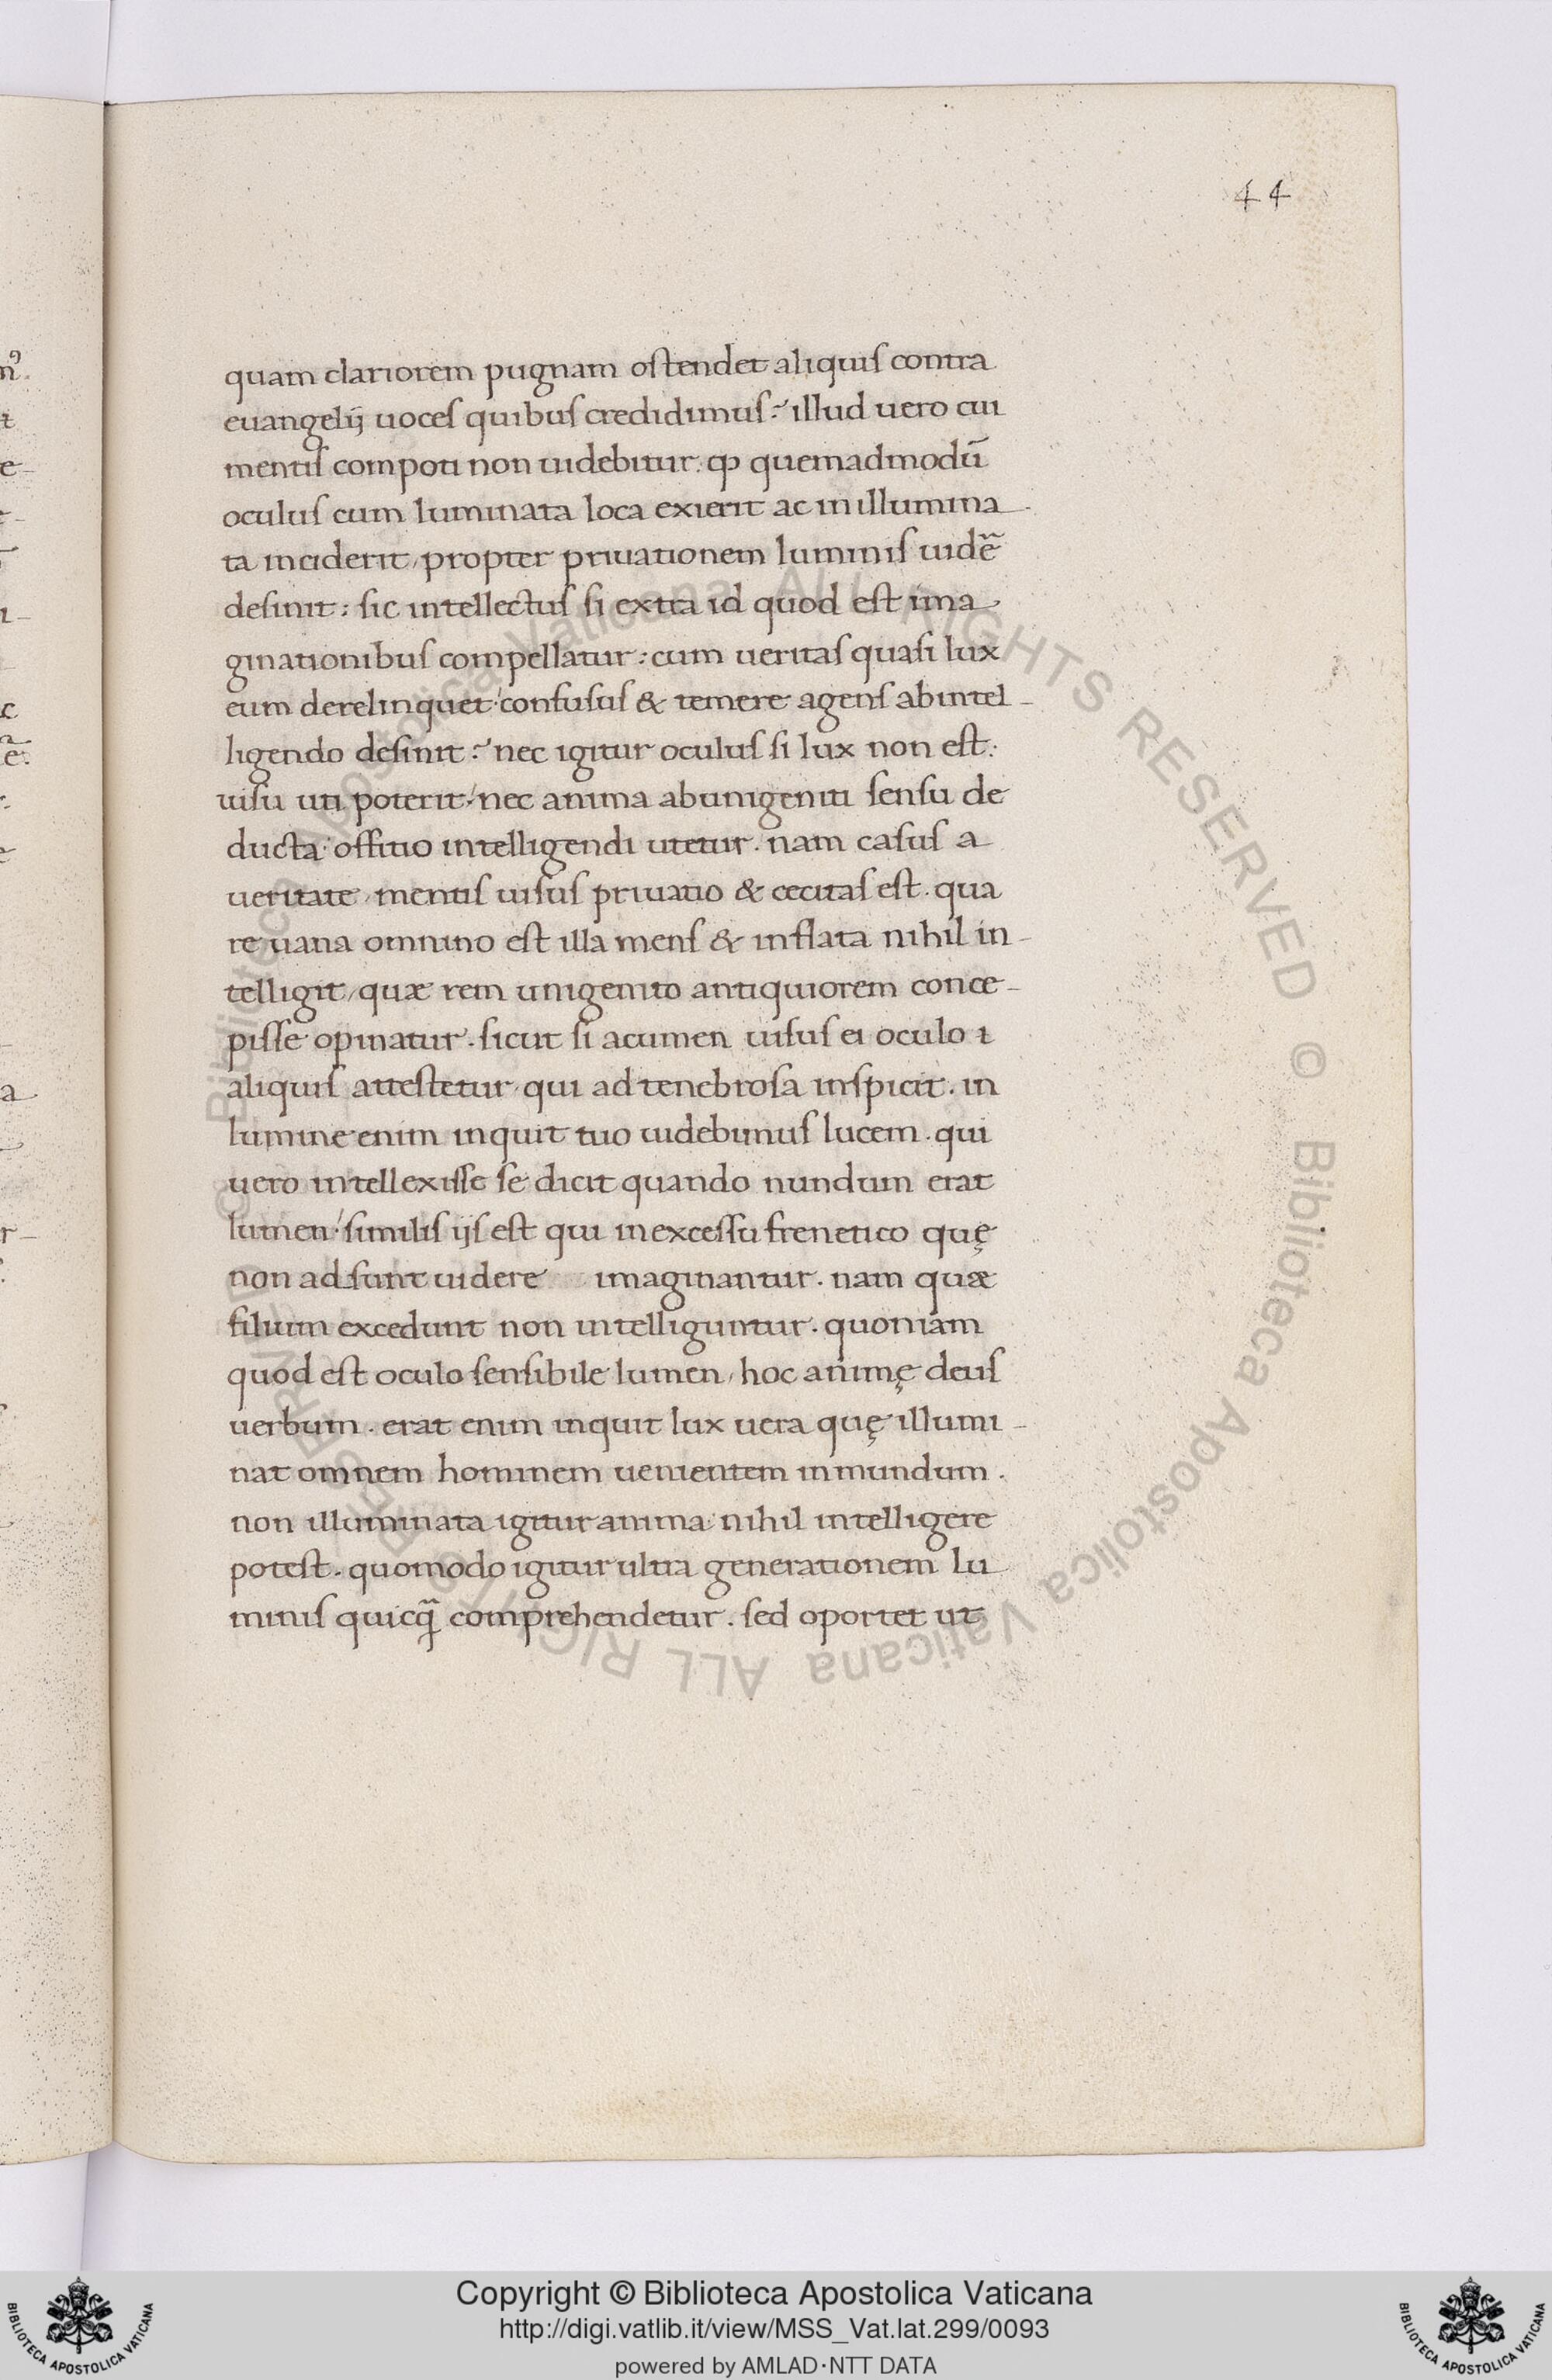 44
quam clariorem pugnam ostendet aliquis contra
euangelij uoces quibus credidimus? illud uero cui
mentis compoti non uidebitur. ꝙ quemadmodū
oculus cum luminata loca exierit ac in illumina
ta inciderit, propter priuationem luminis uidē
desinit: sic intellectus si extra id quod est ima
ginationibus compellatur: cum ueritas quasi lux
eum derelinquet confusus & temere agens ab intel-
ligendo desinit? nec igitur oculus si lux non est:
uisu uti poterit: nec anima ab unigeniti sensu de
ducta offitio intelligendi utetur. nam casus a
ueritate, mentis uisus priuatio & cecitas est. qua
re uana omnino est illa mens & inflata nihil in-
telligit, quæ rem unigenito antiquiorem conce-
pisse opinatur. sicut si acumen uisus ei oculo i
aliquis attestetur, qui ad tenebrosa inspicit. in
lumine enim inquit tuo uidebimus lucem. qui
uero intellexisse se dicit quando nundum erat
lumen: similis ijs est qui in excessu frenetico quę
non adsunt uidere imaginantur. nam quæ
filium excedunt non intelliguntur. quoniam
quod est oculo sensibile lumen, hoc animę deus
uerbum. erat enim inquit lux uera quę illumi-
nat omnem hominem uenientem in mundum.
non illuminata igitur anima nihil intelligere
potest. quomodo igitur ultra generationem lu
minis quicq̃ comprehendetur. sed oportet ut
© Biblioteca Apostolica Vaticana ALL RIGHTS RESERVED © Biblioteca Apostolica Vaticana ALL RIGHTS RESERVED
Copyright © Biblioteca Apostolica Vaticana
http://digi.vatlib.it/view/MSS_Vat.lat.299/0093
powered by AMLAD·NTT DATA
BIBLIOTECA APOSTOLICA VATICANA
BIBLIOTECA APOSTOLICA VATICANA